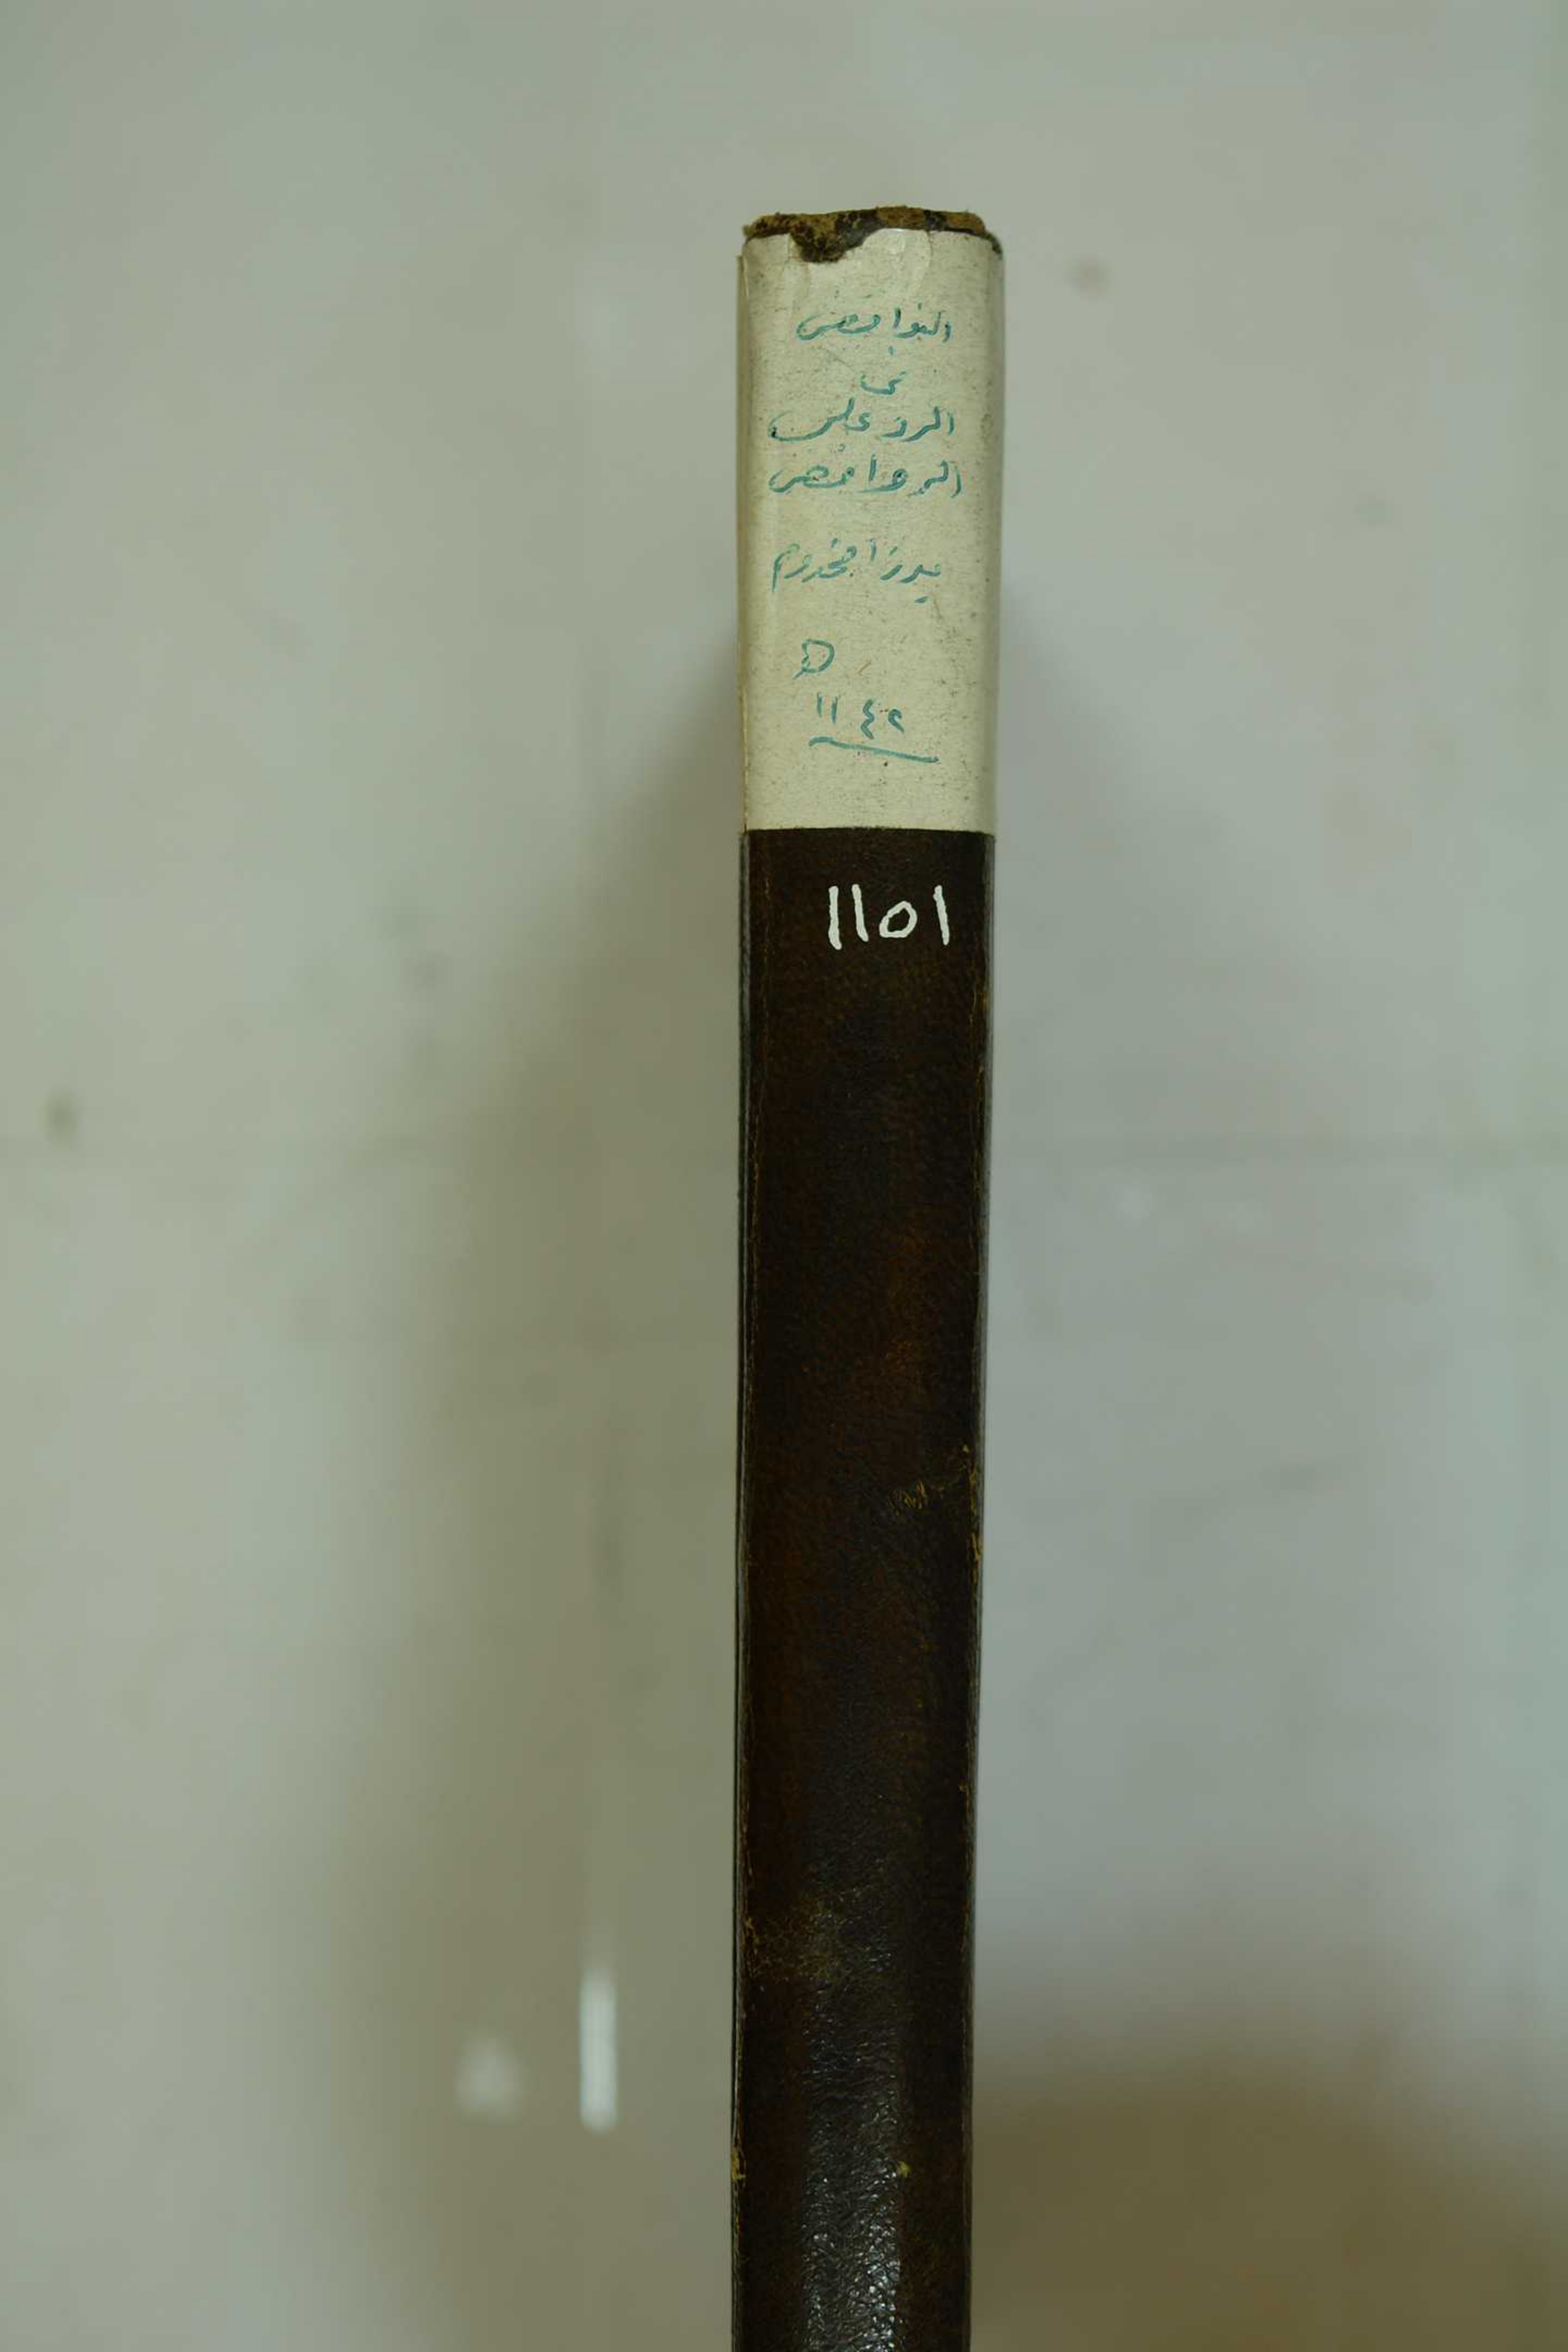 النوافض
في
الرد على
الروافض
ميرزا مخدوم
١١٤٢
١١٥١